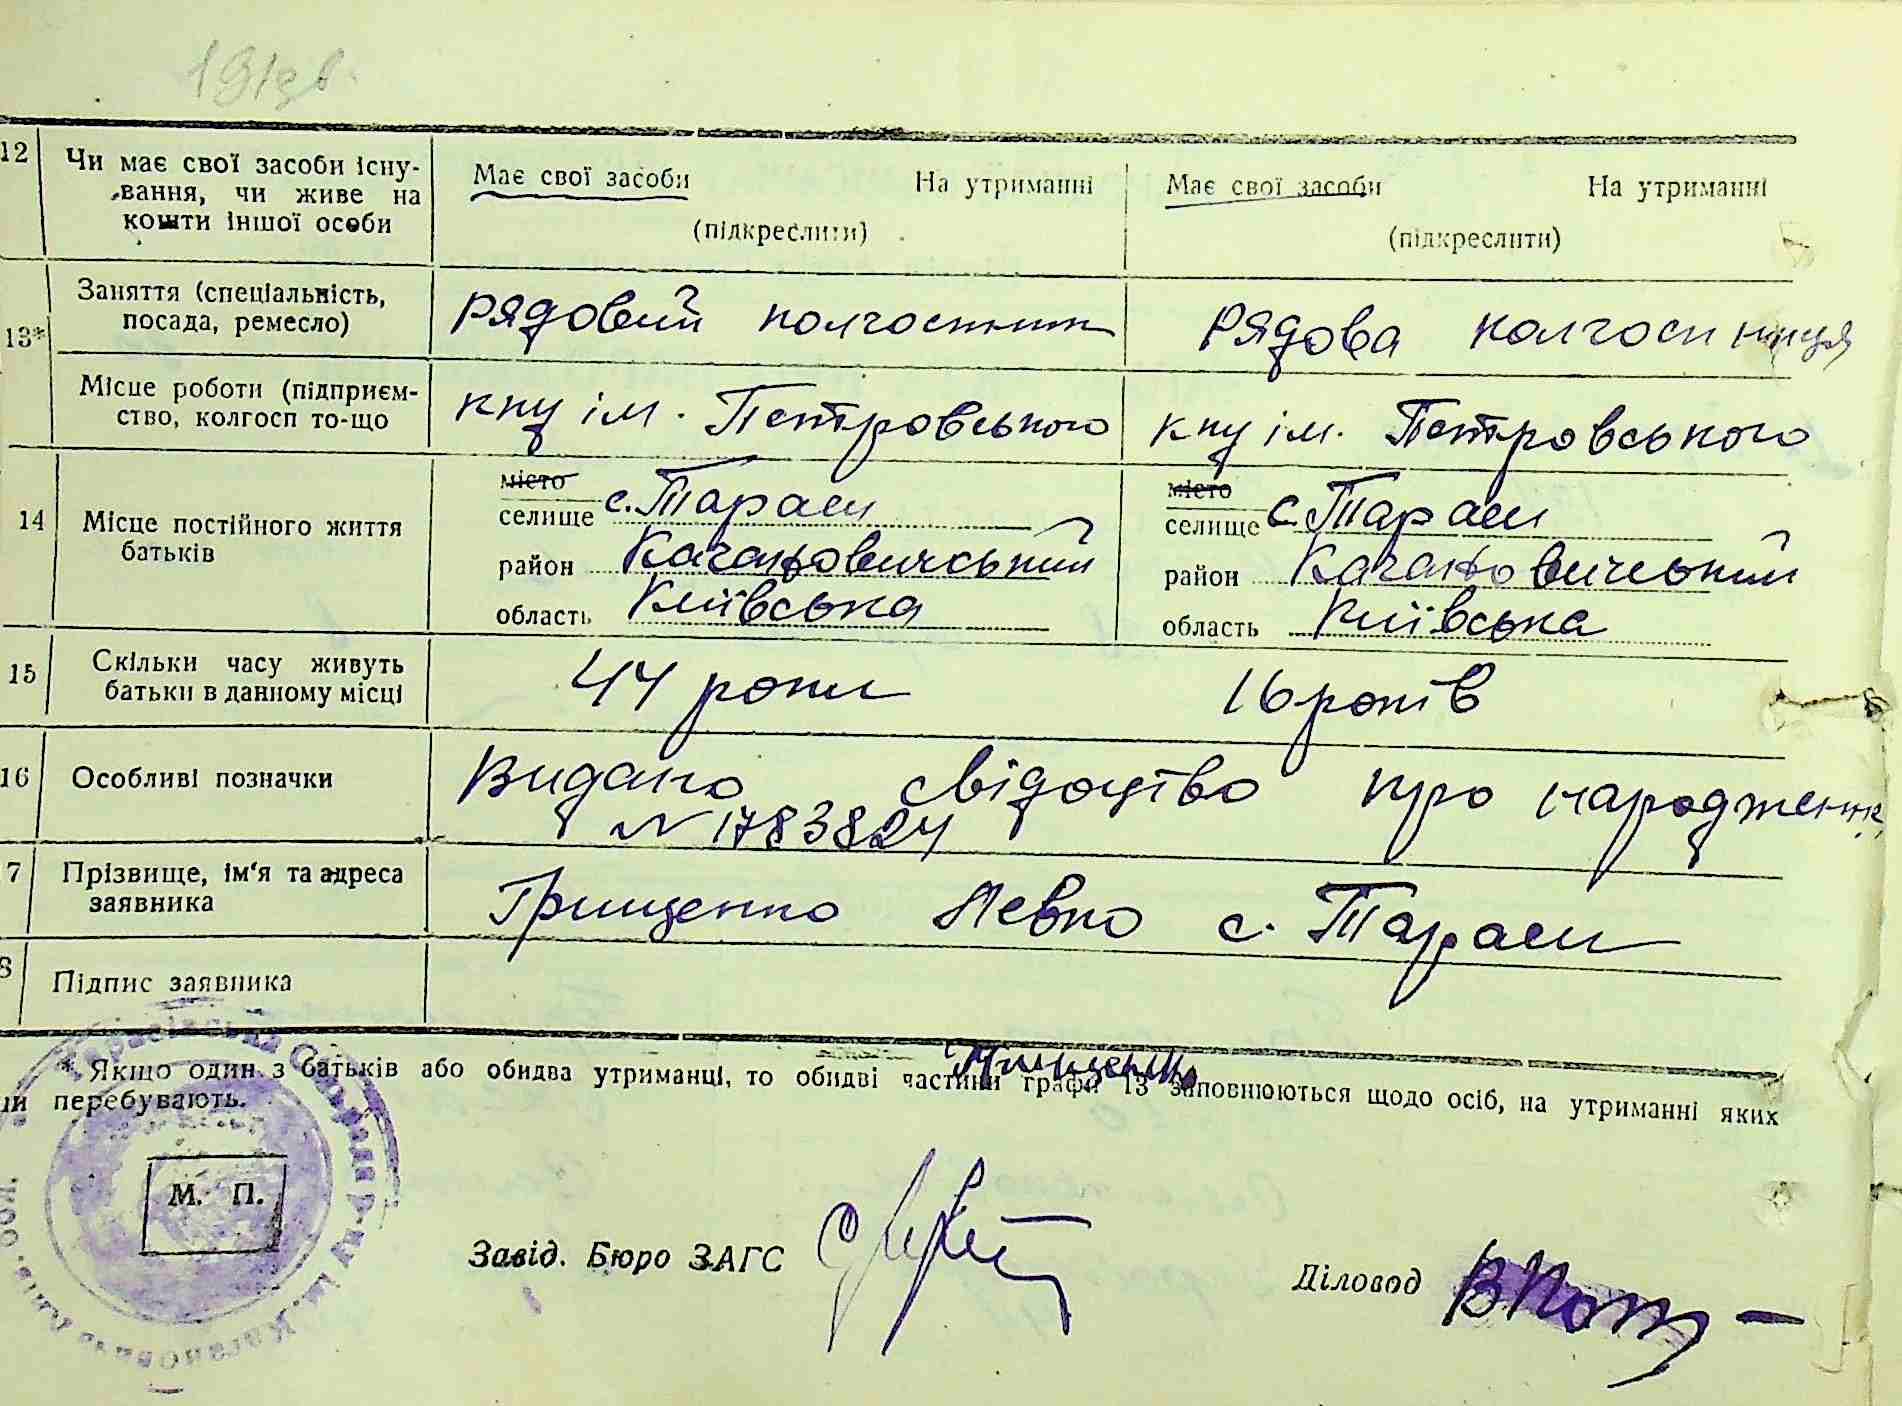 12 Чи має свої засоби існу-
вання, чи живе на
кошти іншої особи
Має свої засоби На утриманні
(підкреслити)
Має свої засоби На утриманні
(підкреслити)
13* Заняття (спеціальність,
посада, ремесло)
рядовий колгоспник
рядова колгоспниця
Місце роботи (підприєм-
ство, колгосп то-що
кпу ім. Петровського
кпу ім. Петровського
14 Місце постійного життя
батьків
місто
селище с. Тараси
район Кагановичський
область Київська
місто
селище с. Тараси
район Кагановичський
область Київська
15 Скільки часу живуть
батьки в данному місці
44 роки
16 років
16 Особливі позначки
Видано свідоцтво про народження
N 1783824
7 Прізвище, ім'я та адреса
заявника
Грищенко Левко с. Тараси
8 Підпис заявника
* Якщо один з батьків або обидва утриманці, то обидві частини графи 13 заповнюються щодо осіб, на утриманні яких
ни перебувають.
М. П.
Завід. Бюро ЗАГС
Діловод